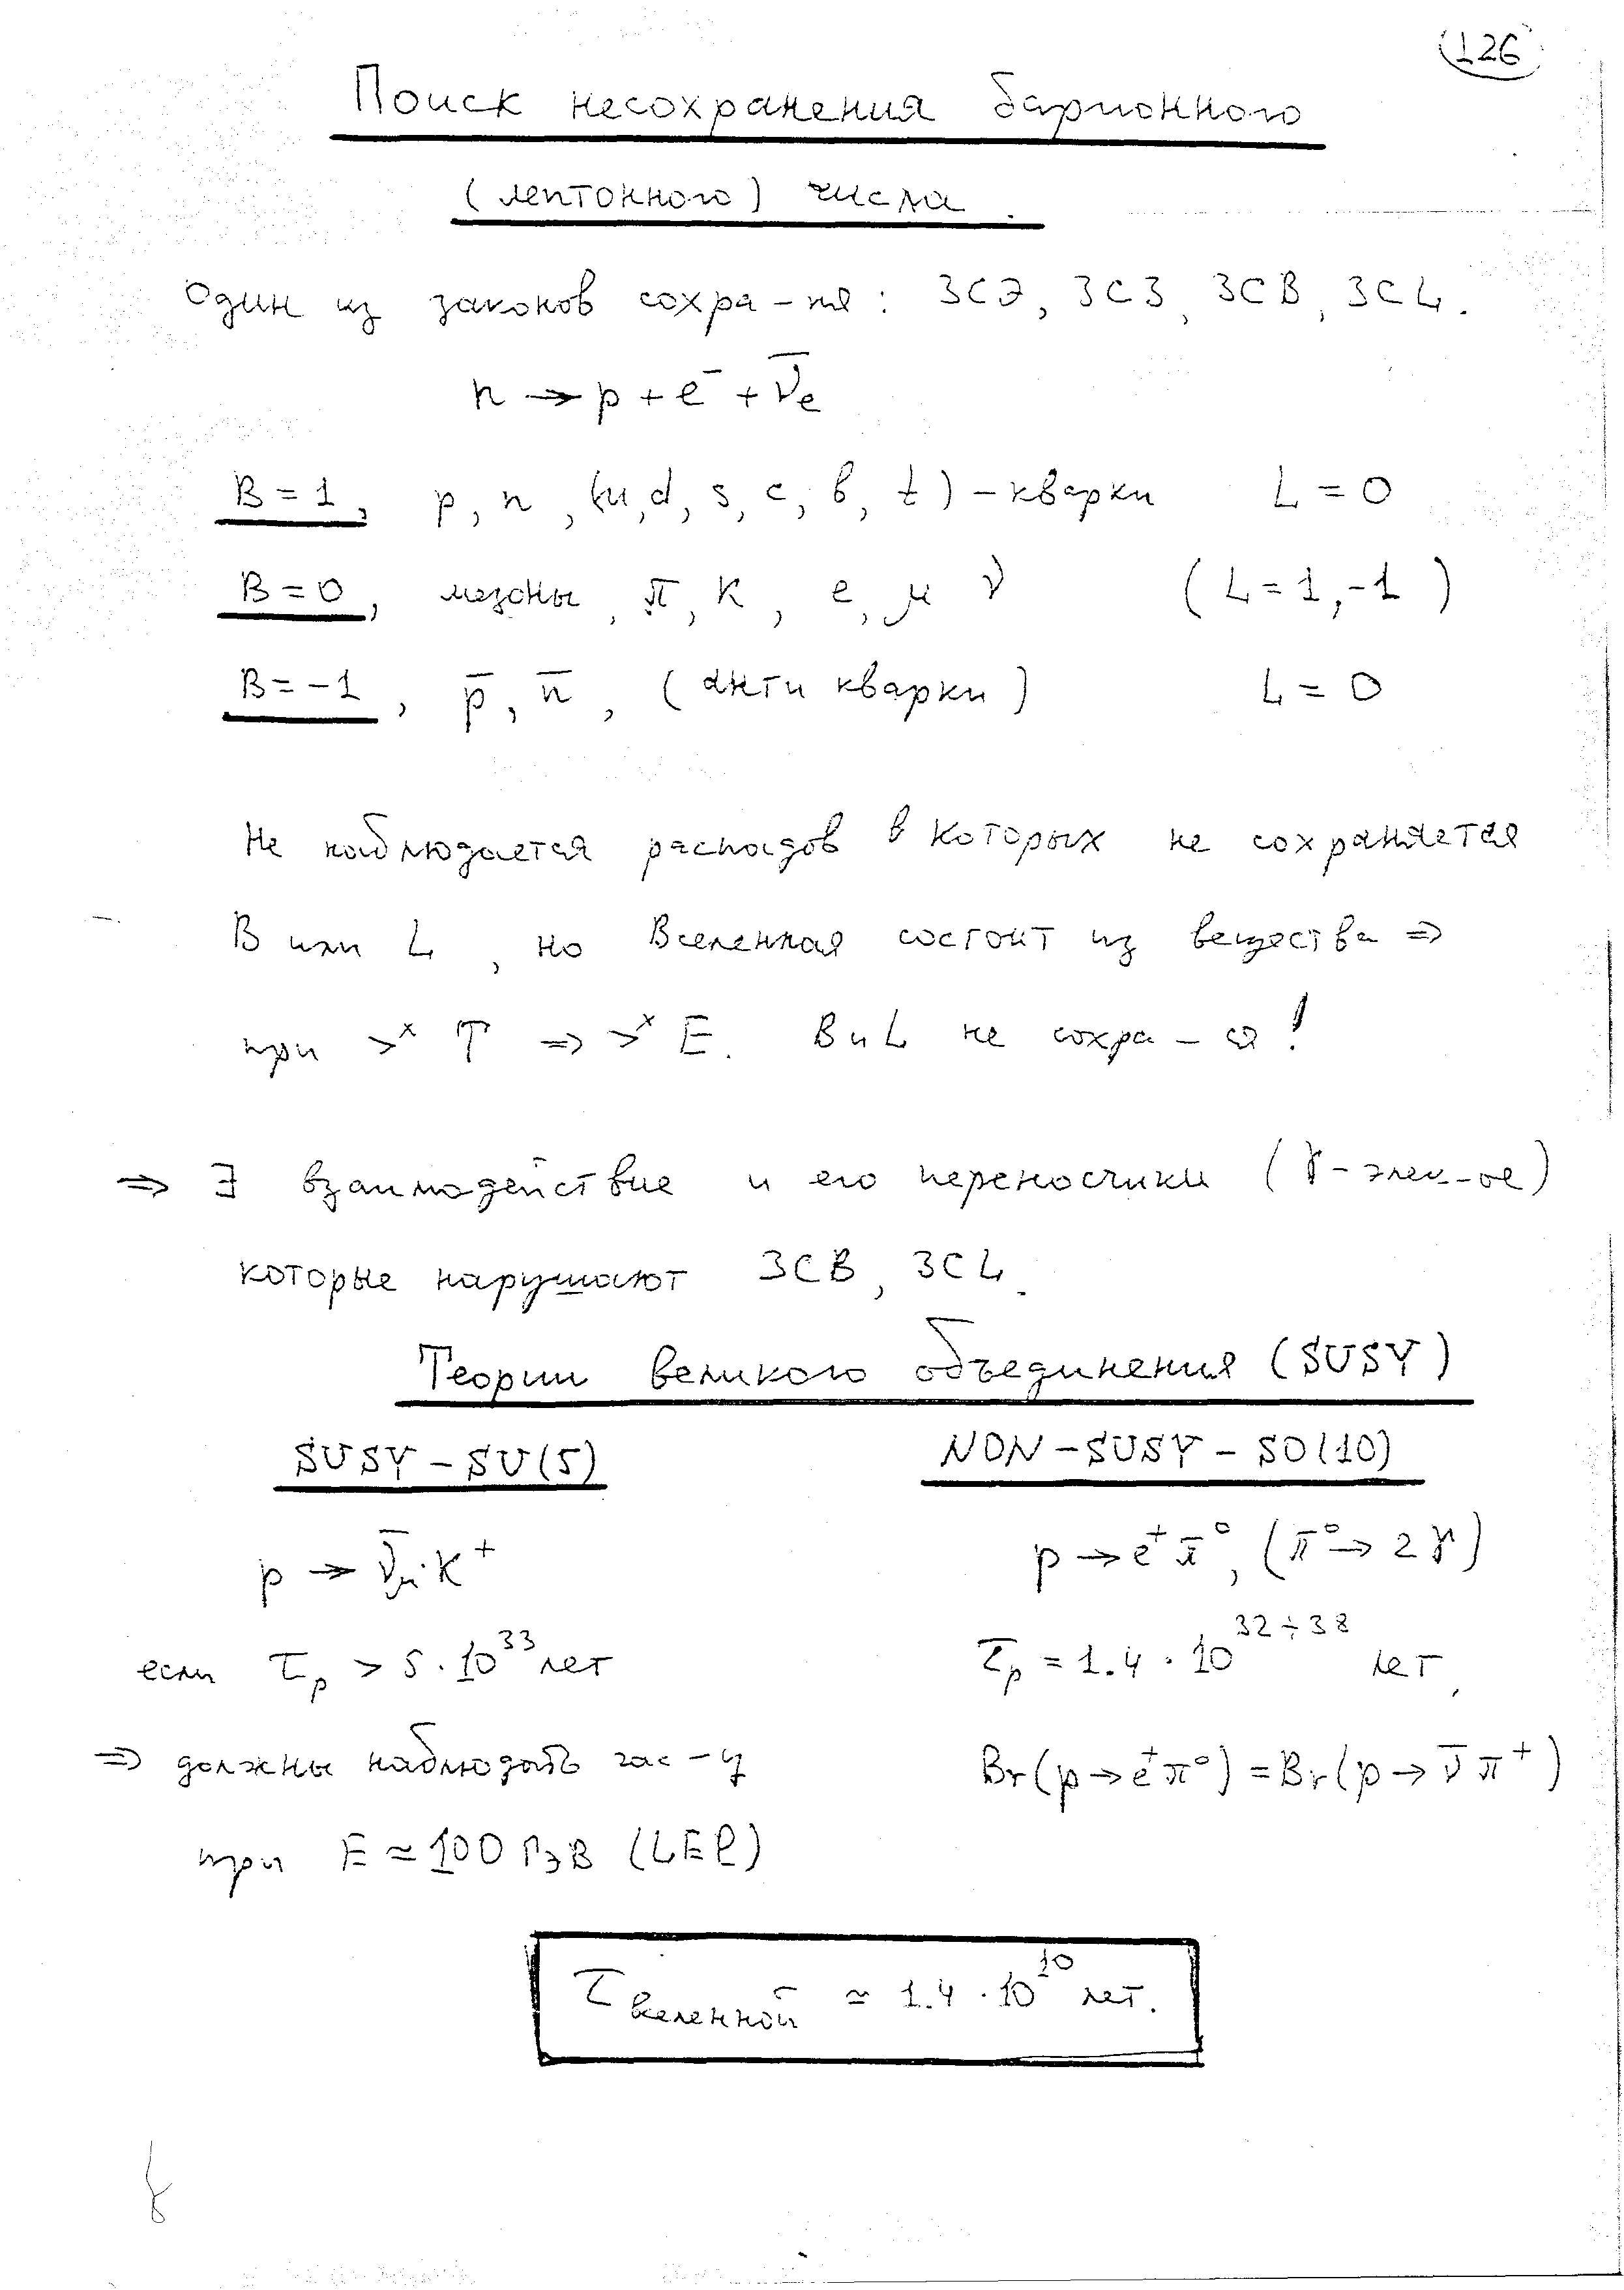 126
Поиск несохранения барионного
(лептонного) числа.
Один из законов сохра-ия: ЗСЭ, ЗСЗ, ЗСВ, ЗСL.
n → p + e⁻ + ν̄ₑ
B = 1, p, n, (u, d, s, c, b, t) - кварки L = 0
B = 0, мезоны, π, K, e, μ ν (L = 1, -1)
B = -1, p̄, n̄, (анти кварки) L = 0
Не наблюдается распадов в которых не сохраняется
B или L, но Вселенная состоит из вещества ⇒
при >ˣ T ⇒ >ˣ E. B и L не сохра-ся!
⇒ ∃ взаимодействие и его переносчики (γ - элек-ое)
которые нарушают ЗСВ, ЗСL.
Теории великого объединения (SUSY)
SUSY - SU(5) NON - SUSY - SO(10)
p → ν̄μ · K⁺ p → e⁺ π⁰, (π⁰ → 2γ)
если τₚ > 5 · 10³³ лет τₚ = 1.4 · 10³²÷³⁸ лет,
⇒ должны наблюдать час-ц Br(p → e⁺π⁰) = Br(p → ν̄ π⁺)
при E ≃ 100 ГэВ (LEP)
τ вселенной ≃ 1.4 · 10¹⁰ лет.